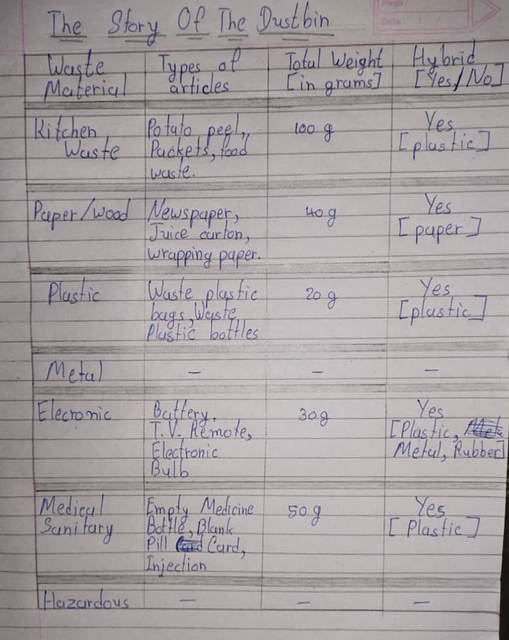 The Story Of The Dustbin
Waste Types of Total Weight Hybrid
Material articles [in grams] [Yes/No]
Kitchen Potato peel, 100 g Yes
Waste Packets, food [plastic]
waste.
Paper/wood Newspaper, 40 g Yes
Juice carton, [paper]
wrapping paper.
Plastic Waste plastic 20 g Yes
bags, Waste [plastic]
Plastic bottles
Metal — — —
Elecronic Battery, 30 g Yes
T.V. Remote, [Plastic,
Electronic Metal, Rubber]
Bulb
Medical Empty Medicine 50 g Yes
Sanitary Bottle, Blank [Plastic]
Pill Card,
Injection
Hazardous — — —